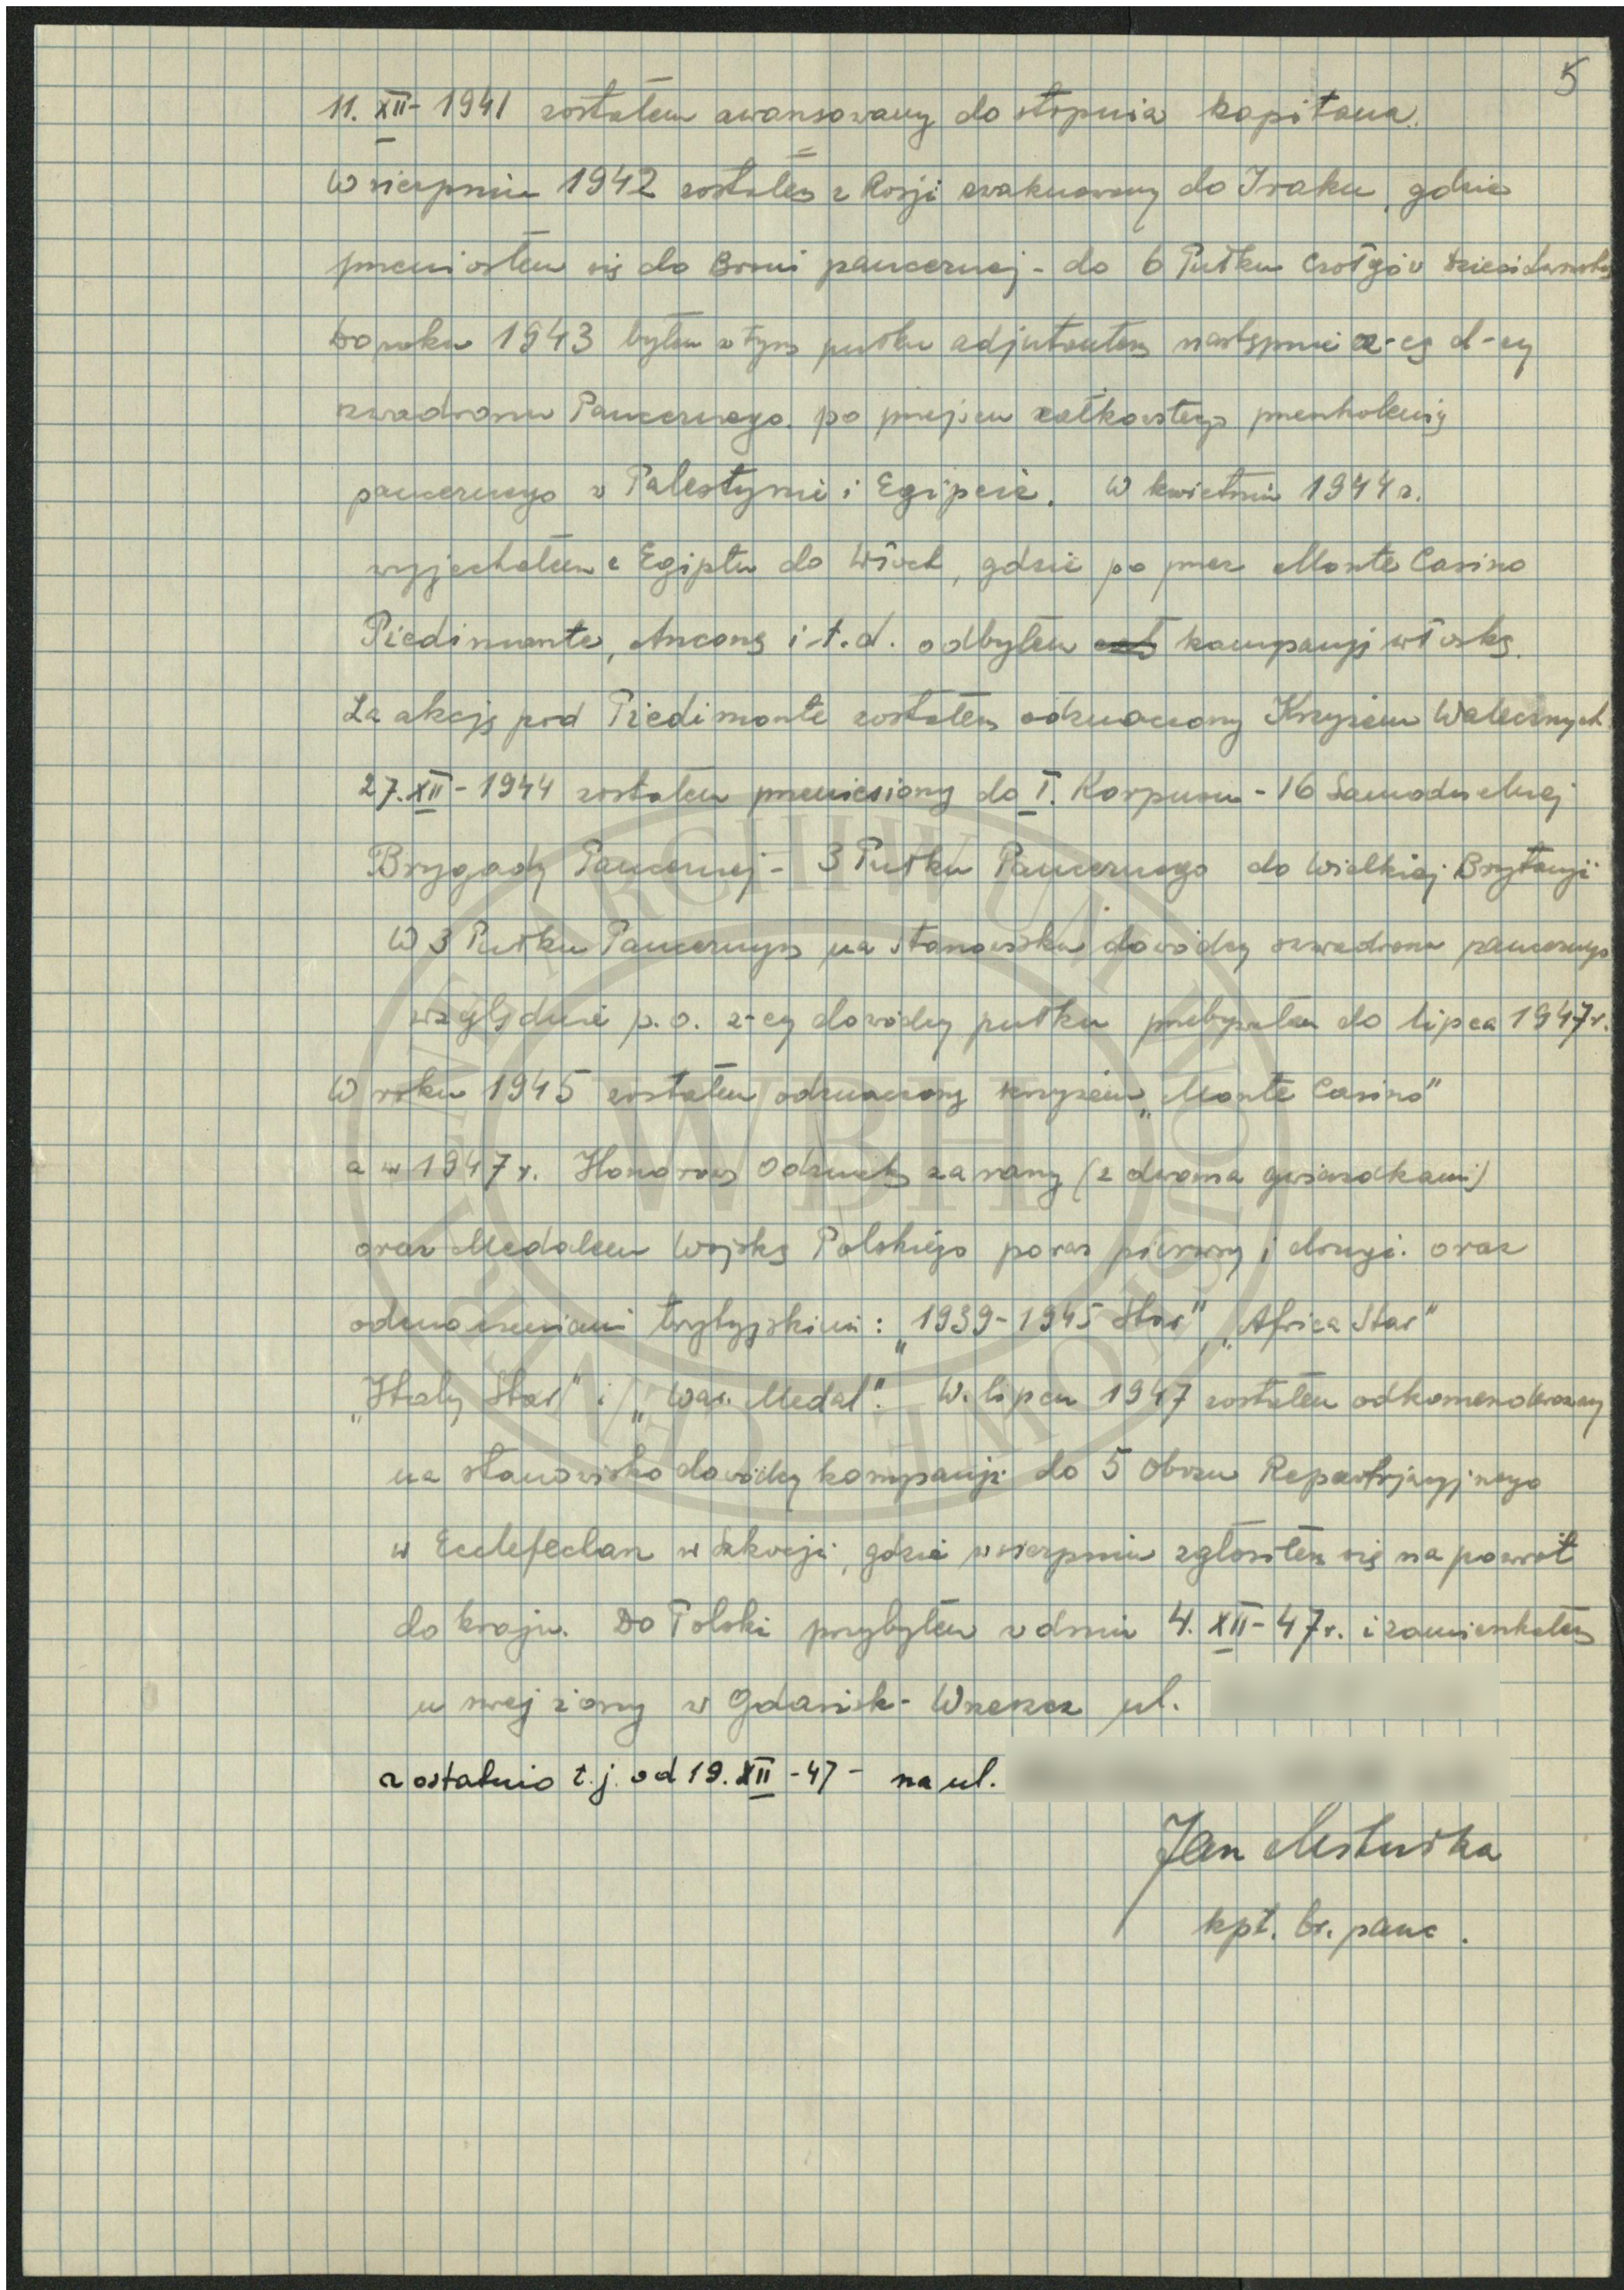 5
11. XII - 1941 zostałem awansowany do stopnia kapitana.
W sierpniu 1942 zostałem z Rosji ewakuowany do Iraku, gdzie
przeniosłem się do Broni pancernej - do 6 Pułku Czołgów Dzieci Lwowskich
Do roku 1943 byłem w tym pułku adjutantem następnie z-cą d-cy
szwadronu Pancernego. po przejściu całkowitego przeszkolenia
pancernego w Palestynie i Egipcie. W kwietniu 1944 r.
wyjechałem z Egiptu do Włoch, gdzie po przez Monte Casino
Piedimonte, Anconę i t.d. odbyłem kampanję włoską.
Za akcję pod Piedimonte zostałem odznaczony Krzyżem Walecznych.
27. XII - 1944 zostałem przeniesiony do I. Korpusu - 16 Samodzielnej
Brygady Pancernej - 3 Pułku Pancernego do Wielkiej Brytanji
W 3 Pułku Pancernym na stanowisku dowódcy szwadronu pancernego
względnie p.o. z-cy dowódcy pułku przebywałem do lipca 1947 r.
W roku 1945 zostałem odznaczony krzyżem „Monte Casino"
a w 1947 r. Honorową Odznaką za rany (z dwoma gwiazdkami)
oraz Medalem Wojska Polskiego po raz pierwszy i drugi. oraz
odznaczeniami brytyjskimi: „1939-1945 Star", „Africa Star"
„Italy Star" i „War. Medal". W lipcu 1947 zostałem odkomenderowany
na stanowisko dowódcy kompanji do 5 Obozu Repartrjacyjnego
w Ecclefechan w Szkocji, gdzie w sierpniu zgłosiłem się na powrót
do kraju. Do Polski przybyłem w dniu 4. XII - 47 r. i zamieszkałem
u swej żony w Gdańsk - Wrzeszcz ul.
a ostatnio t.j. od 19. XII - 47 - na ul.
Jan Mstuśka
kpt. br. panc.
WBH